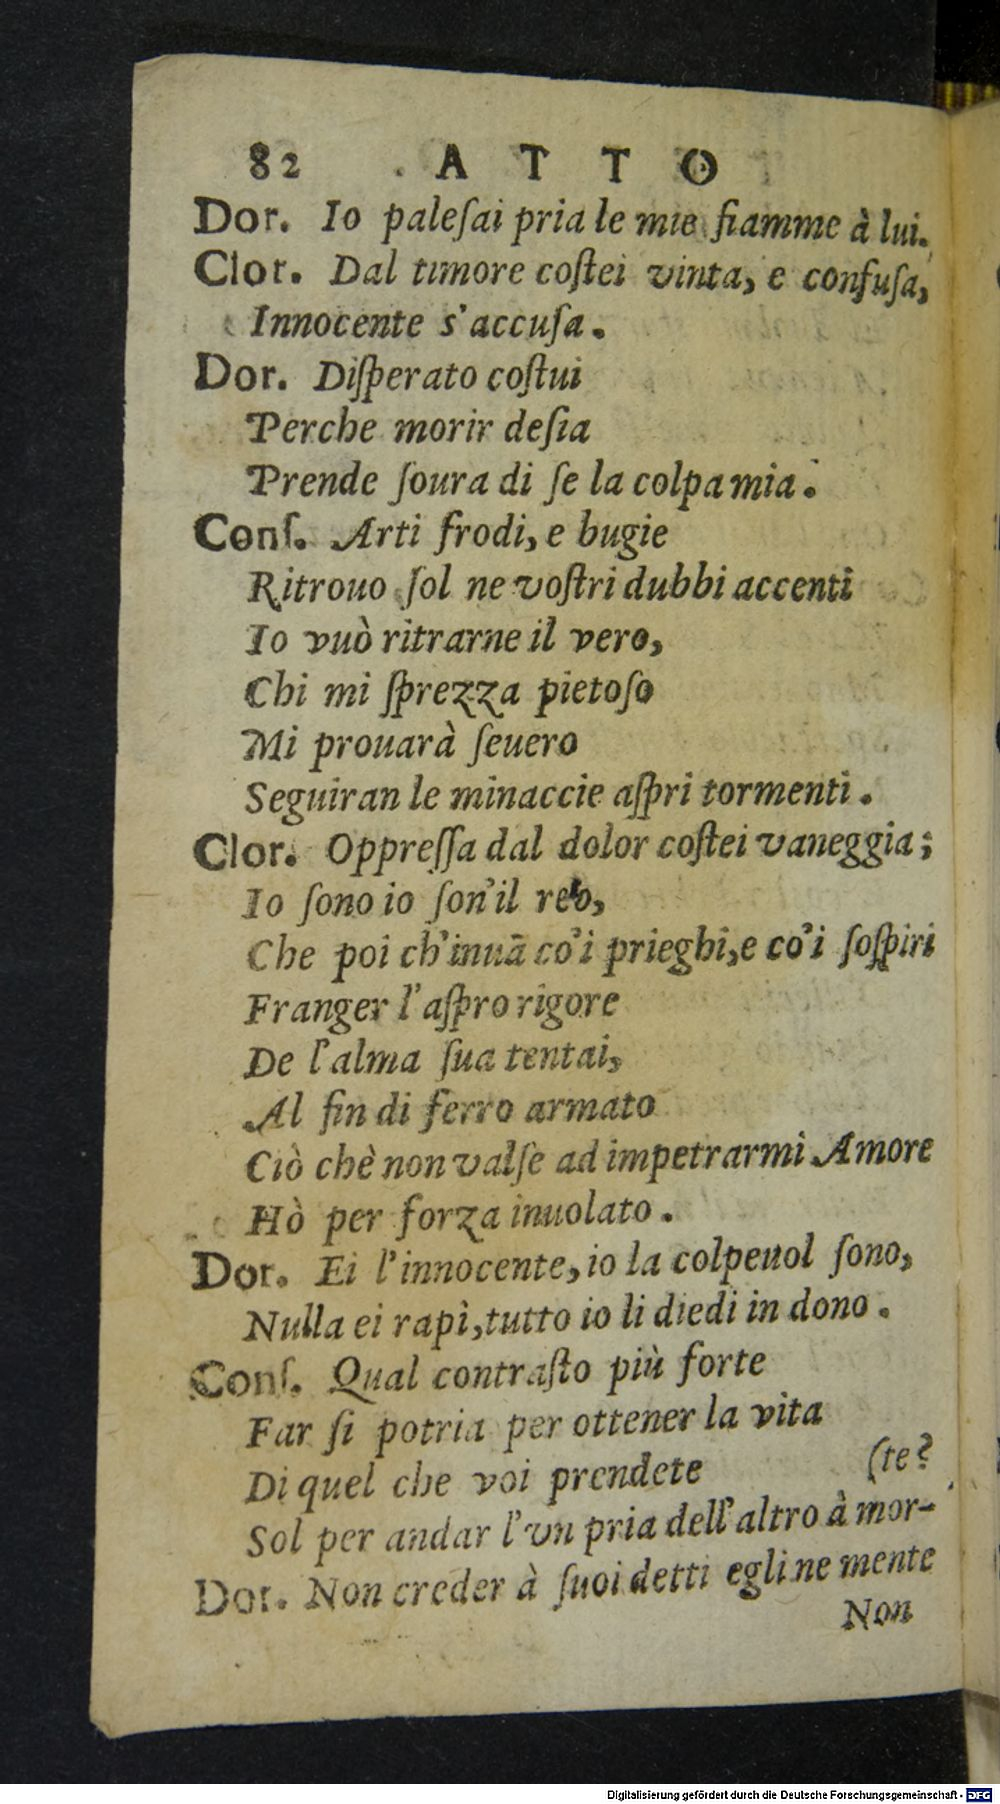 82 . ATTO
Dor. Io paleſai pria le mie fiamme à lui.
Clor. Dal timore coſtei vinta, e confuſa,
Innocente s'accuſa.
Dor. Diſperato coſtui
Perche morir deſia
Prende ſoura di ſe la colpa mia.
Conſ. Arti frodi, e bugie
Ritrouo ſol ne voſtri dubbi accenti
Io vuò ritrarne il vero,
Chi mi ſprezza pietoſo
Mi prouarà ſeuero
Seguiran le minaccie aſpri tormenti.
Clor. Oppreſſa dal dolor coſtei vaneggia;
Io ſono io ſon'il reo,
Che poi ch'inuã co'i prieghi, e co'i ſoſpiri
Franger l'aſpro rigore
De l'alma ſua tentai,
Al fin di ferro armato
Ciò chè non valſe ad impetrarmi Amore
Hò per forza inuolato.
Dor. Ei l'innocente, io la colpeuol ſono,
Nulla ei rapì, tutto io li diedi in dono.
Conſ. Qual contraſto più forte
Far ſi potria per ottener la vita
Di quel che voi prendete (te?
Sol per andar l'vn pria dell'altro à mor-
Dor. Non creder à ſuoi detti egli ne mente
Non
Digitalisierung gefördert durch die Deutsche Forschungsgemeinschaft - DFG